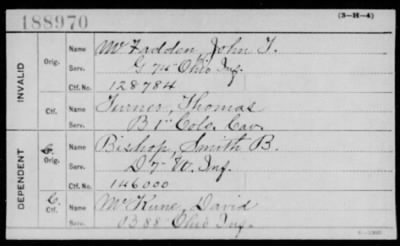 188970
(3-H-4)
INVALID
Orig. Name McFadden, John T.
Serv. G 75 Ohio Inf.
Ctf. No. 128784
Ctf. Name Turner, Thomas
Serv. B 1st Colo. Cav.
DEPENDENT
C. Orig. Name Bishop, Smith B.
Serv. D 7 W. Inf.
Ctf. No. 146000
C. Ctf. Name McKune, David
Serv. B 88 Ohio Inf.